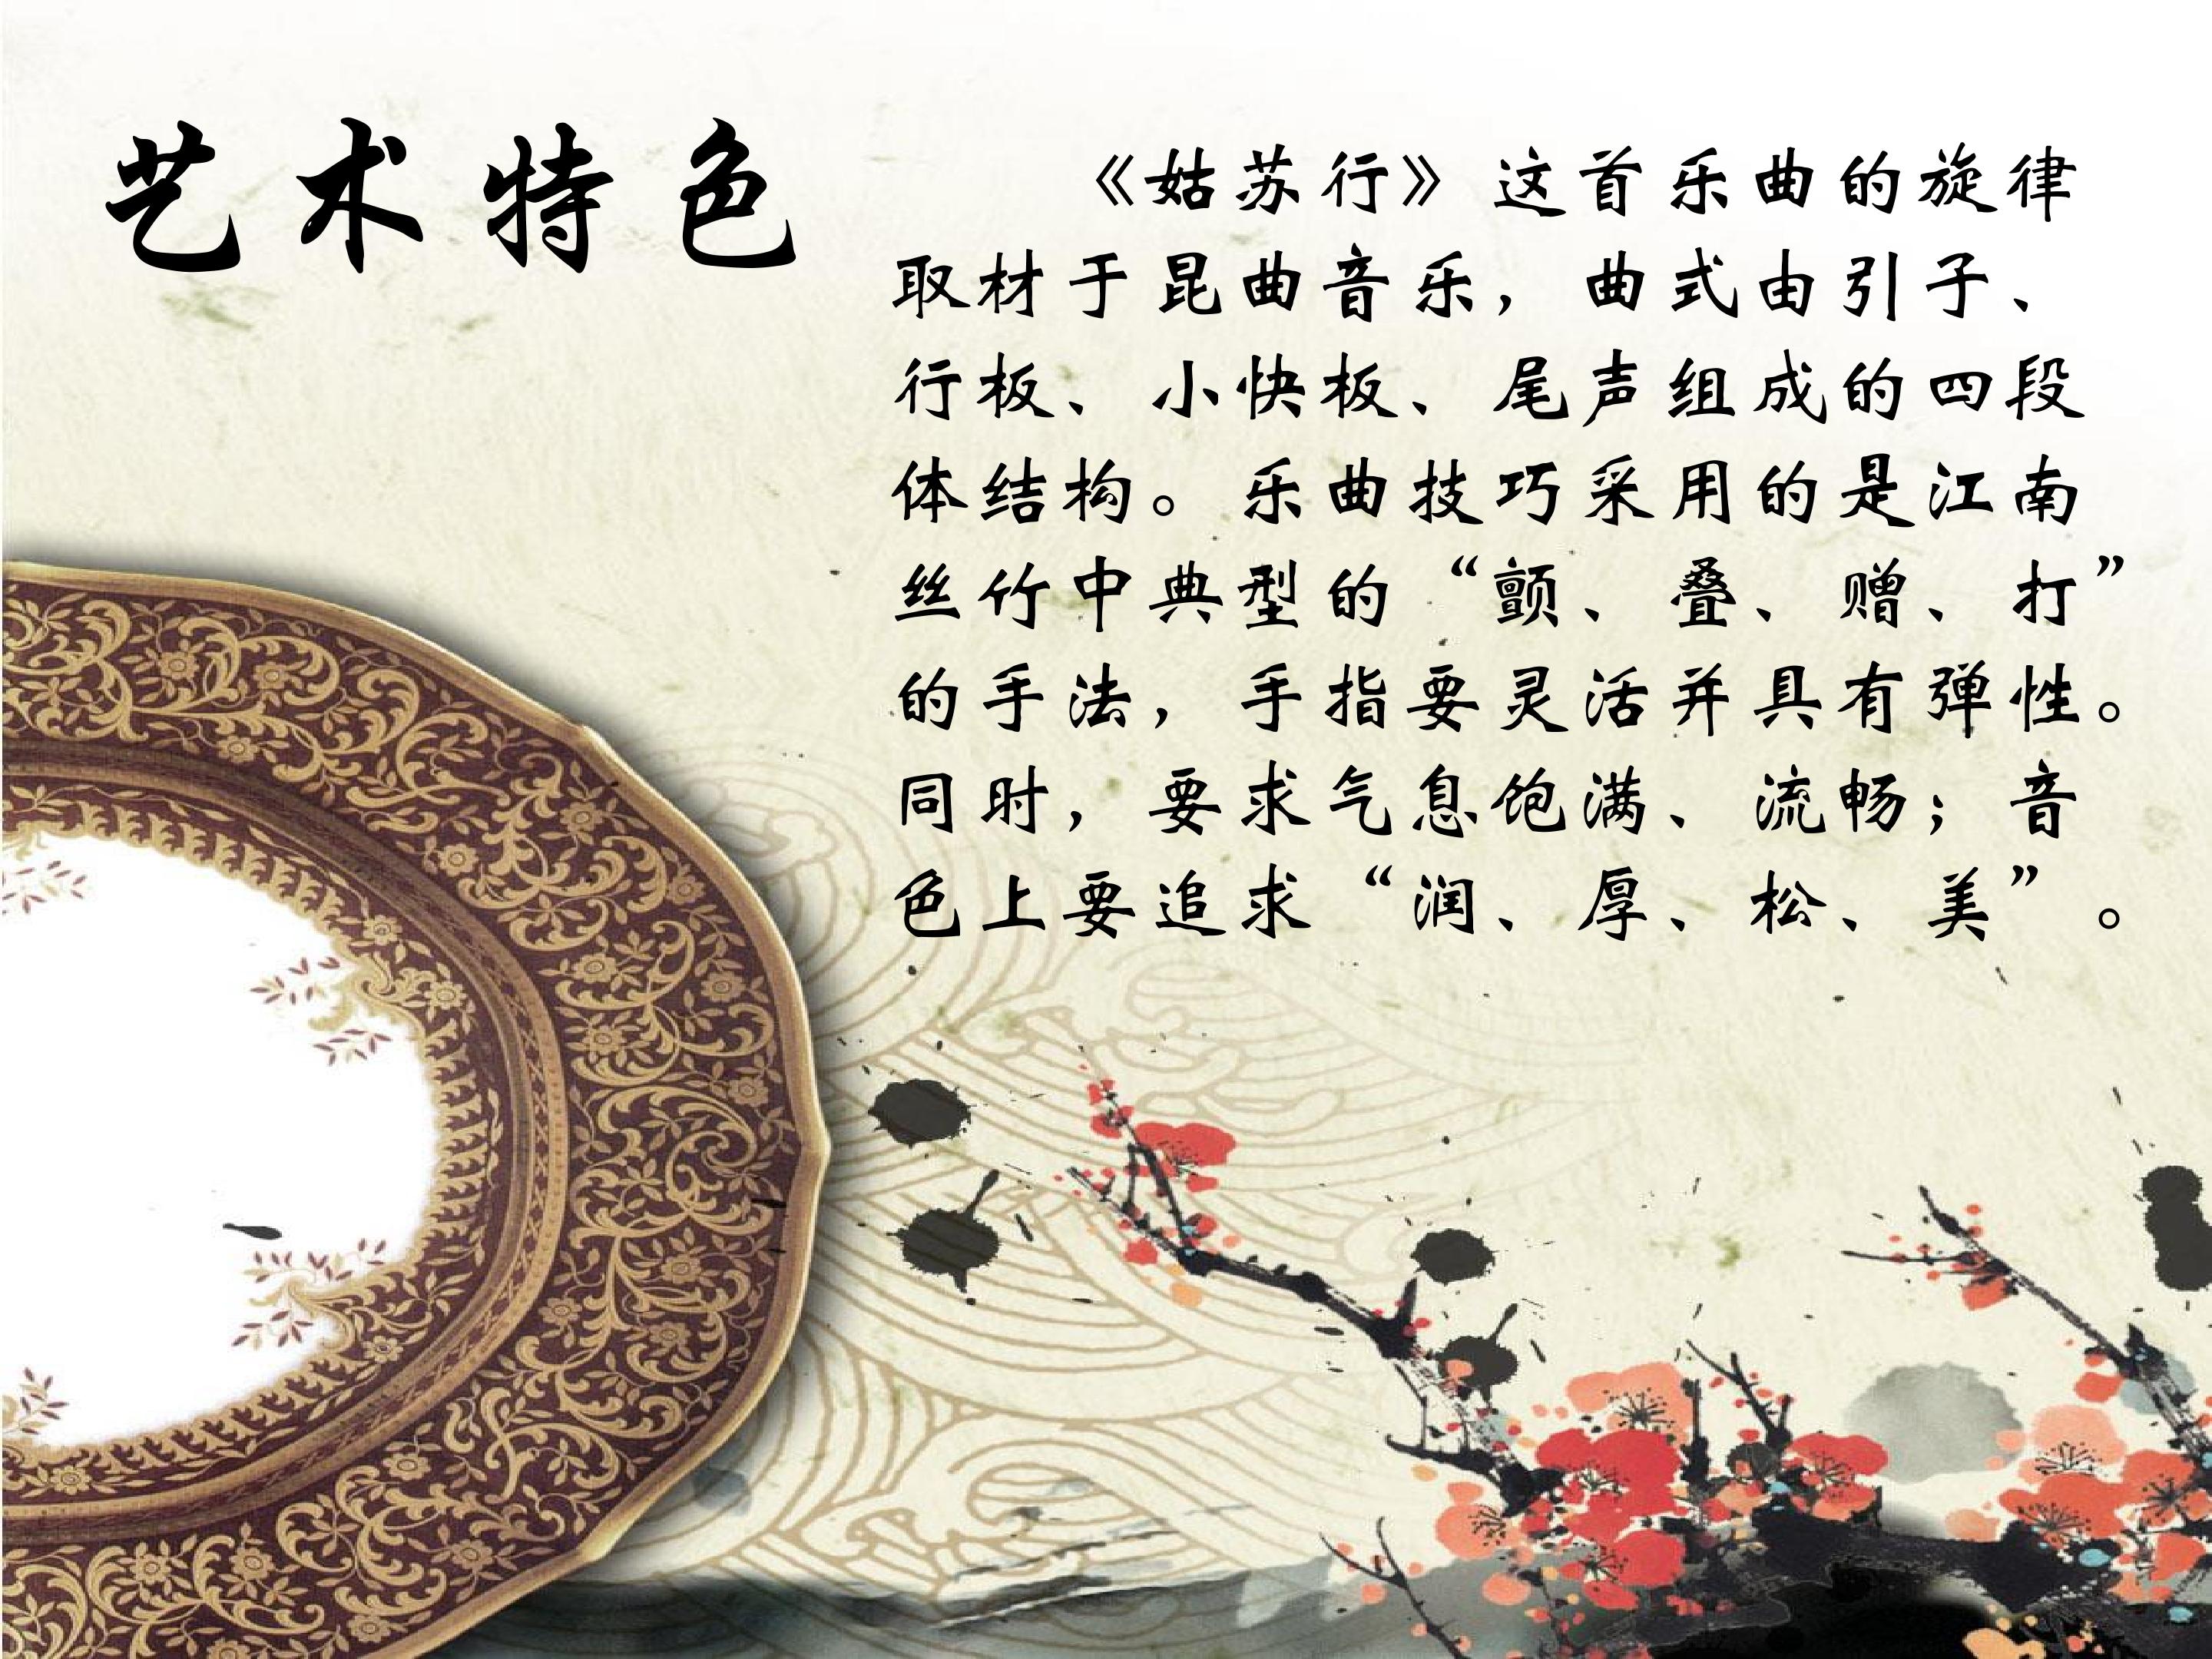 艺术特色
《姑苏行》这首乐曲的旋律
取材于昆曲音乐，曲式由引子、
行板、小快板、尾声组成的四段
体结构。乐曲技巧采用的是江南
丝竹中典型的“颤、叠、赠、打”
的手法，手指要灵活并具有弹性。
同时，要求气息饱满、流畅；音
色上要追求“润、厚、松、美”。